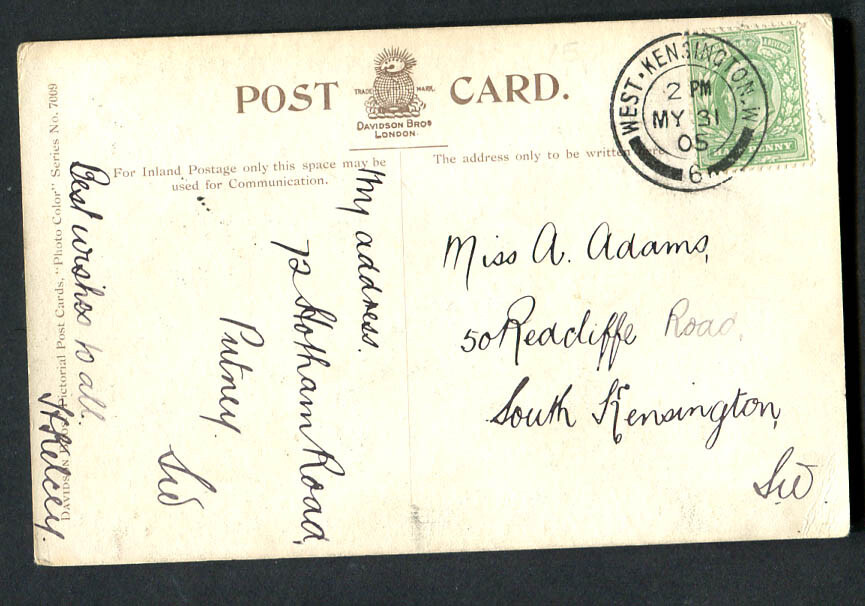 POST CARD.
TRADE MARK.
DAVIDSON BROS
LONDON
For Inland Postage only this space may be
used for Communication.
The address only to be written here
WEST·KENSINGTON.W
2 PM
MY 31
05
6
PENNY
Miss A. Adams,
50 Redcliffe Road,
South Kensington,
SW.
My address.
72 Hotham Road,
Putney.
SW
Best wishes to all.
Pictorial Post Cards, "Photo Color" Series No. 7009
DAVIDSON